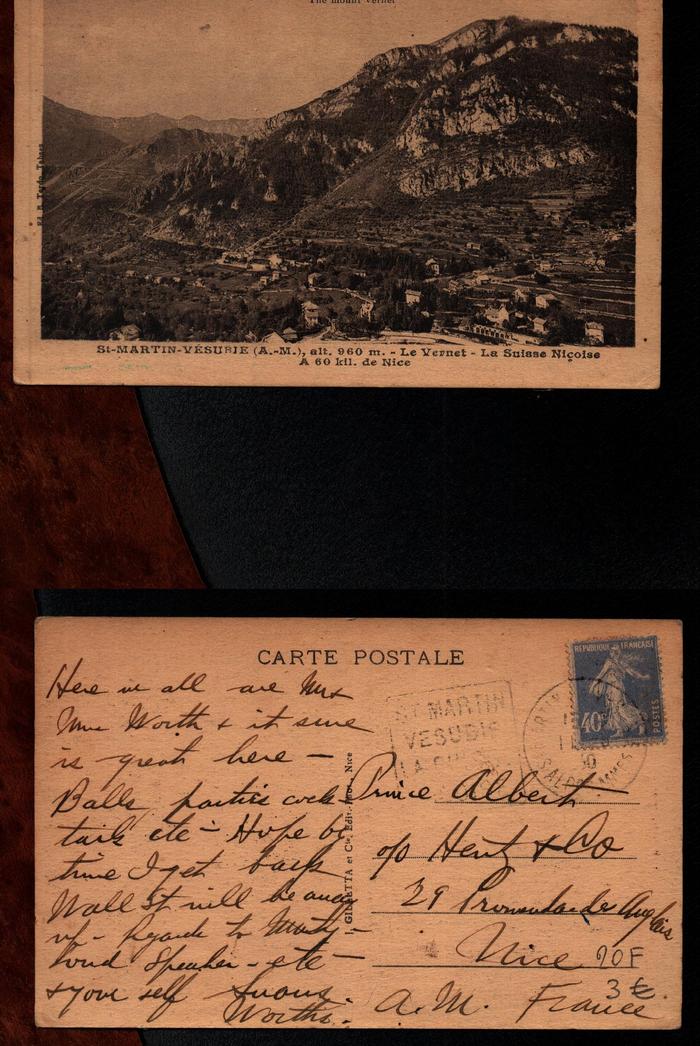 The Mount Vernet
St-MARTIN-VÉSUBIE (A.-M.), alt. 960 m. - Le Vernet - La Suisse Niçoise
A 60 kil. de Nice
CARTE POSTALE
REPUBLIQUE FRANÇAISE
40c
POSTES
ST MARTIN
VESUBIE
LA SUISSE
ALPES MMES
Here we all are Mrs
Worth & it sure
is great here —
Balls parties cock-
tails etc - Hope by
time I get back
Wall St will be away
up - Regards to
Loud Speaker - etc —
& your self
Worths.
Prince Albert
c/o Hentz & Co
29 Promenade des Anglais
Nice
A.M. France
20F
3€
GILLETTA et Cie, Nice